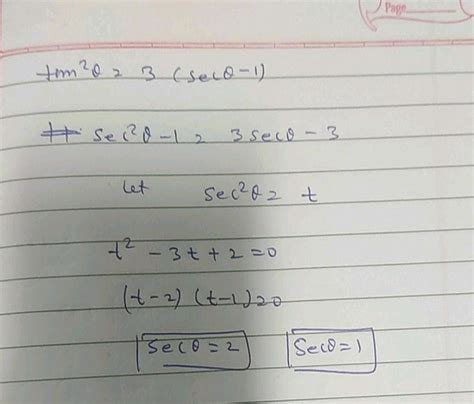 Page
tan²θ = 3 (secθ-1)
sec²θ-1 = 3secθ-3
let sec²θ = t
t² - 3t + 2 = 0
(t-2) (t-1) = 0
secθ = 2 secθ = 1